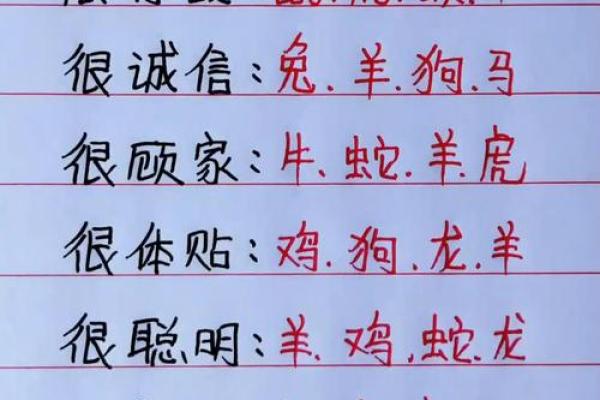 很诚信:兔.羊.狗.马
很顾家:牛.蛇.羊.虎
很体贴:鸡.狗.龙.羊
很聪明:羊.鸡.蛇.龙